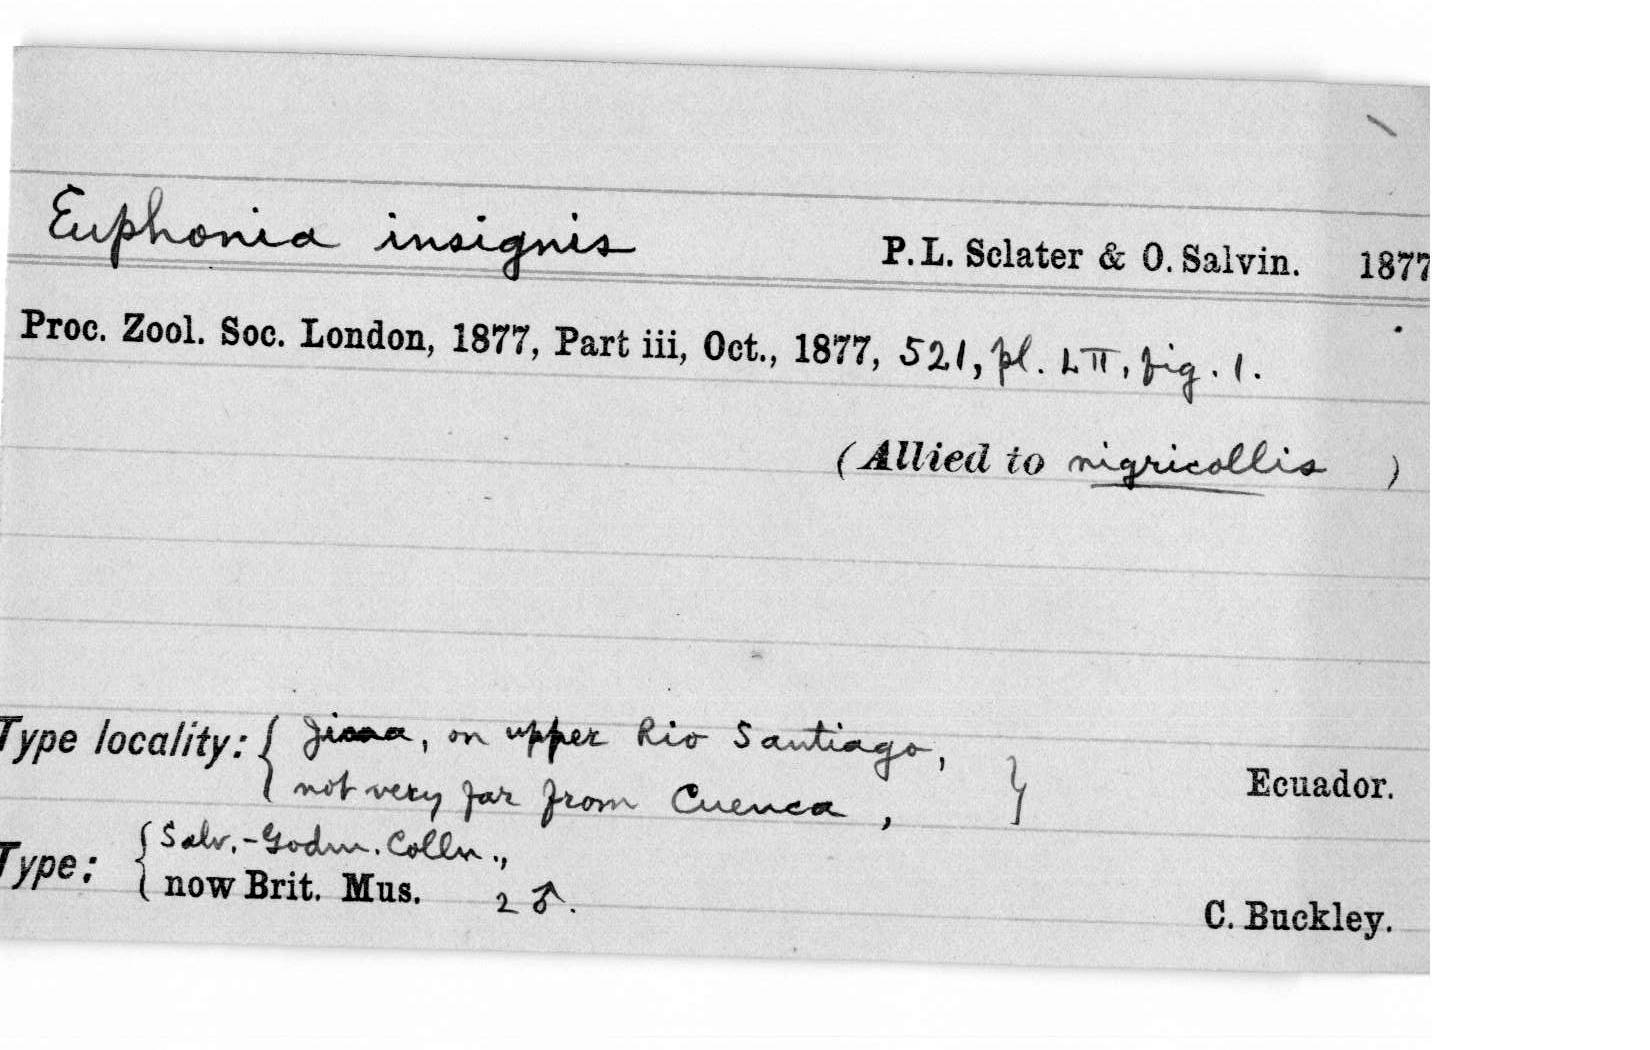 Euphonia insignis P. L. Sclater & O. Salvin. 1877
Proc. Zool. Soc. London, 1877, Part iii, Oct., 1877, 521, pl. LII, fig. 1.
(Allied to nigricollis )
Type locality: { , on upper Rio Santiago,
not very far from Cuenca, } Ecuador.
Type: { Salv.-Godm. Colln.,
now Brit. Mus. 2 ♂. C. Buckley.